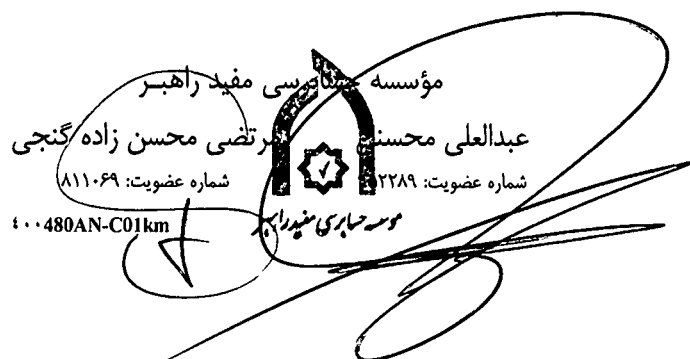 مؤسسه حسابرسی مفید راهبر
عبدالعلی محسن مرتضی محسن زاده گنجی
شماره عضویت: ۲۲۸۹ شماره عضویت: ۸۱۱۰۶۹
موسسه حسابرسی مفید راهبر
٤٠٠480AN-C01km